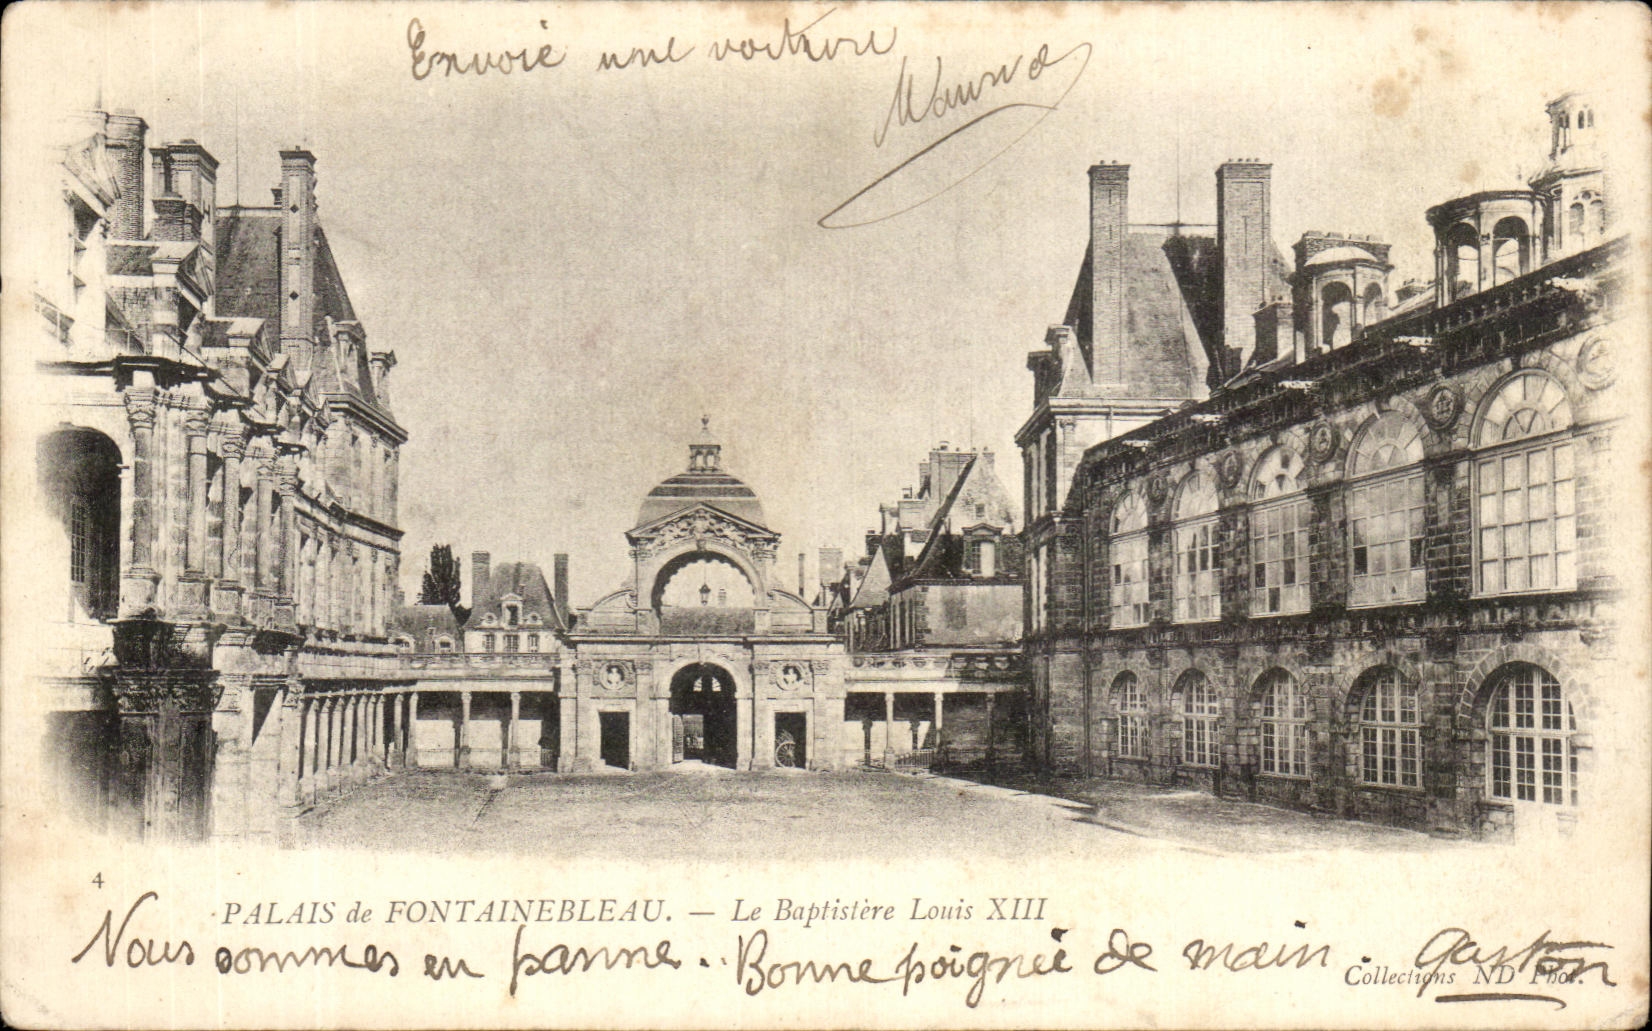 Envoie une voiture
4
PALAIS de FONTAINEBLEAU. — Le Baptistère Louis XIII
Nous sommes en panne. Bonne poignée de main Gaston
Collections ND Phot.